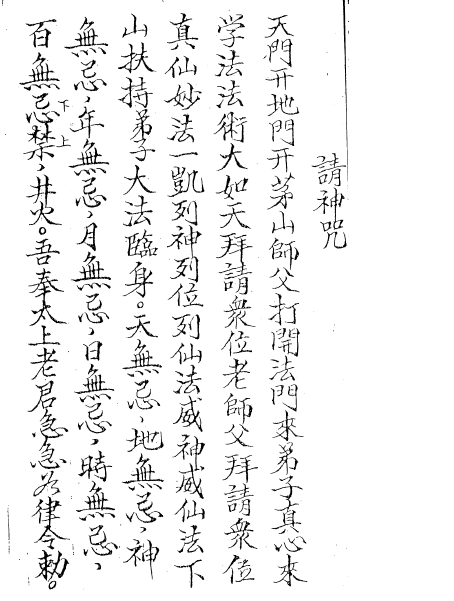 請神咒
天門开地門开茅山師父打開法門來弟子真心來
学法法術大如天拜請衆位老師父拜請衆位
真仙妙法一凱列神列位列仙法威神威仙法下
山扶持弟子大法臨身。天無忌，地無忌，神
無忌，年無忌，月無忌，日無忌，時無忌，
百無忌禁，井火。吾奉太上老君急急为律令勅。
下
上